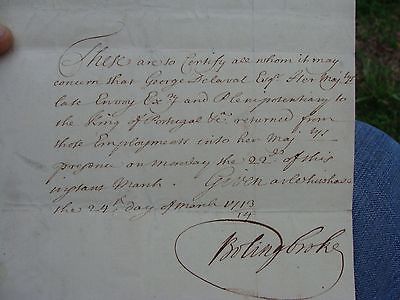 These are to Certify all whom it may
concern that George Delaval Esqr. Her Maj:tys
late Envoy Ex:ry and Plenipotentiary to
the King of Portugal &c. returned from
those Employments into her Maj:tys
presence on Monday the 22:d of this
instant March. Given at Whitehall
the 24th. day of March 1713
14
Bolingbroke